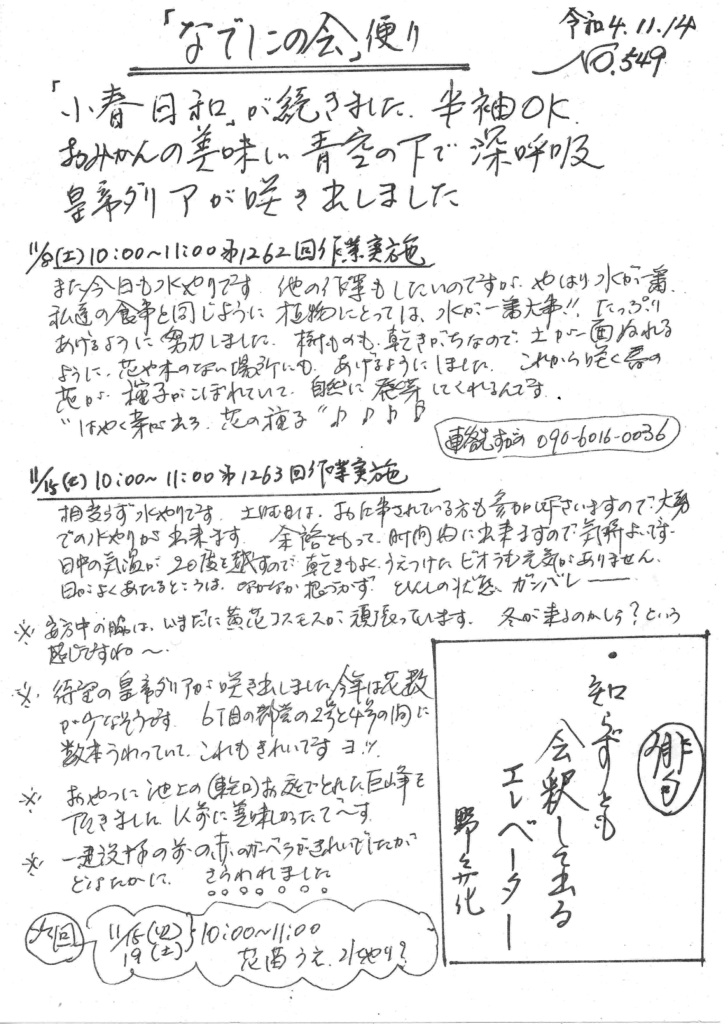 「なでしこの会」便り
令和4.11.14
No.549
「小春日和」が続きました。半袖OK.
おみかんの美味しい青空の下で深呼吸
皇帝ダリアが咲き出しました
(土)10:00〜11:00 第1262回作業実施
また今日も水やりです。他の作業もしたいのですが、やはり水が一番。
私達の食事と同じように植物にとっては、水が一番大事!!、たっぷり
あげるように努力しました。樹木も乾きがちなので、土が一面ぬれる
ように、花や木のない場所にも、あげるようにしました。これから咲く春の
花が、種子がこぼれていて、自然に発芽してくれるんです.
"はやく芽が出ろ 花の種子"♪♪♪♪
連絡先 090-6016-0036
11/15(火)10:00〜11:00 第1263回作業実施
相変らず水やりです。土曜日は、お仕事されている方も参加下さいますので、大勢
での水やりが出来ます。余裕をもって、時間内に出来ますので気持よいです.
日中の気温が20度を越すので、乾きもよく、うえつけたビオラも元気がありません.
日がよくあたるところは、なかなか根づかず ひんしの状態 ガンバレ――
※ の脇は、いまだに黄花コスモスが頑張っています。 冬が来るのかしら?という
感じですね〜.
※ 待望の皇帝ダリアが咲き出しました。今年は花数
が少なそうです。6丁目の都営の2号と4号の間に
数本うわっていて、これもきれいですヨ!!
※ おやつに池上の お庭でとれた巨峰を
下さきました。 美味しかったで〜す.
※ の前の赤のガーベラがきれいでしたが
どなたかに、 さらわれました
次回
11/15(火)
19(土)
10:00〜11:00
花苗うえ、水やり?
俳句
・知らずとも
会釈して出る
エレベーター
野々花